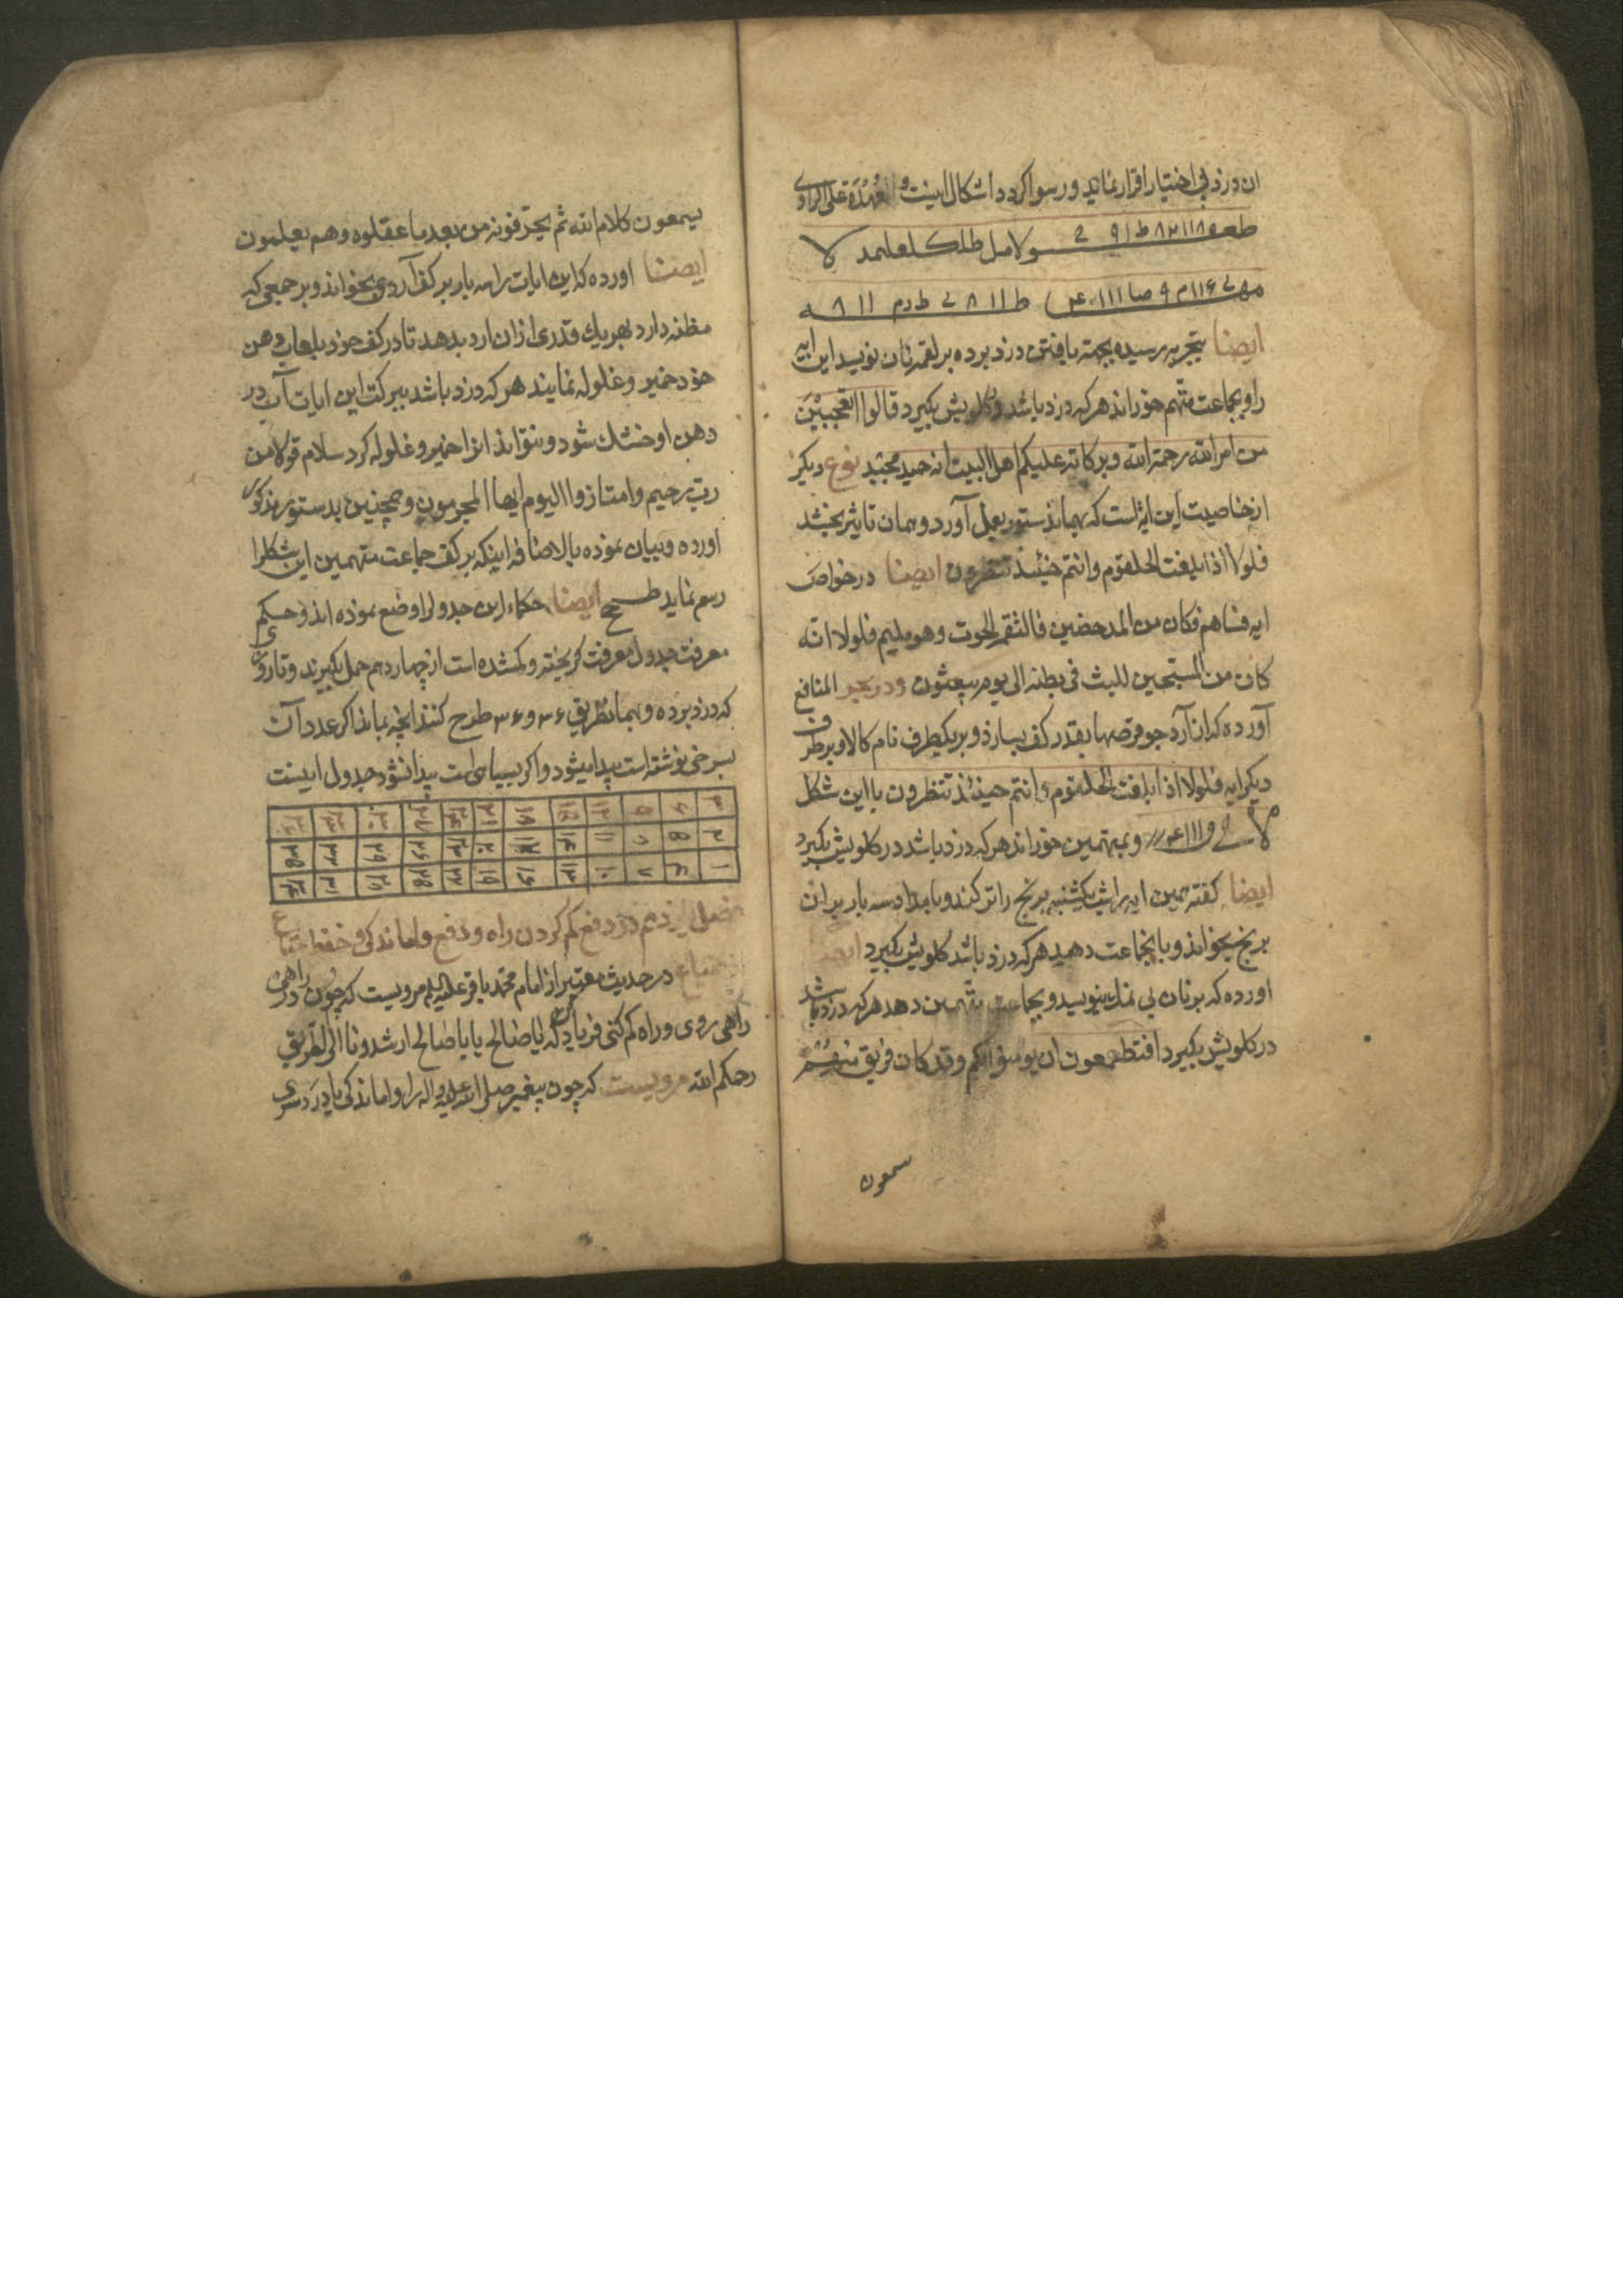 ان دزد بی اختیار اقرار نماید و رسوا کردد اشکال اینست والعُهْدَة علی الراوی
ایضا بتجربه رسیده بجهة یافتن دزد برده بر لقمه نان نویسد این ایه
را و بجماعت متهم خوراند هر که دزد باشد در کلویش بکیرد قالوا اتعجبین
من امر الله رحمة الله وبرکاته علیکم اهل البیت انه حمید مجید نوع دیکر
از خاصیت این ایه است که بهمان دستور بعمل آورد و همان تاثیر بخشد
فلولا اذا بلغت الحلقوم وانتم حینئذ تنظرون ایضا در خواص
ایه فساهم فکان من المدحضین فالتقمه الحوت وهو ملیم فلولا انه
کان من المسبحین للبث فی بطنه الی یوم یبعثون و در بحر المنافع
آورده که از آرد جو قرصها بقدر کف بسازد و بر یکطرف نام کالا و بر طرف
دیکر ایه فلولا اذا بلغت الحلقوم وانتم حینئذ تنظرون با این شکل
و بمتهمین خوراند هر که دزد باشد در کلویش بکیرد
ایضا کفته همین ایه را شب یکشنبه برنج را تر کند و بامداد سه بار بر ان
برنج بخواند و بانجماعت دهد هر که دزد باشد کلویش بکیرد ایضا
اورده که بر نان بی نمک بنویسد و بجماعت متهمین دهد هر که دزد باشد
در کلویش بکیرد افتطمعون ان یومنوا لکم وقد کان فریق منهم
یسمعون
یسمعون کلام الله ثم یحرفونه من بعد ما عقلوه وهم یعلمون
ایضا اورده که این ایات را سه بار بر کف آردی بخواند و بر جمعی که
مظنه دارد بهر یک قدری از ان ارد بدهد تا در کف خود بلعاب دهن
خود خمیر و غلوله نمایند هر که دزد باشد ببرکت این ایات آب در
دهن او خشک شود و نتواند انرا خمیر و غلوله کرد سلام قولا من
رب رحیم وامتازوا الیوم ایها المجرمون و همچنین بدستور مذکور
اورده و بیان نموده بالاضافه اینکه بر کف جماعت متهمین این شکلرا
رسم نماید ایضا حکماء این جدول را وضع نموده اند و حکم
معرفت جدول معرفت کریخته و کمشده است از چهاردهم حمل بکیرند و تا روزی
که دزد برده و بهمانطریق ۳۶ و ۳۶ طرح کنند انچه بماند اکر عدد آن
بسرخی نوشته است پیدا میشود و اکر بسیاهی است پیدا نشود جدول اینست
۳ ۶ ۵ ۱۲ ۱۵ ۱۸ ۲۱ ۲۴ ۲۷ ۳۰ ۳۳ ۳۶
۲ ۵ ۸ ۱۱ ۱۴ ۱۷ ۲۰ ۲۳ ۲۶ ۲۹ ۳۲ ۳۵
۱ ۴ ۷ ۱۰ ۱۳ ۱۶ ۱۹ ۲۲ ۲۵ ۲۸ ۳۱ ۳۴
فصل در دفع کم کردن راه و دفع واماندکی و حفظ
در حدیث معتبر از امام محمد باقر علیه السلم مرویست که چون در راهی
راهی روی و راه کم کنی فریاد کن که یا صالح یا با صالح ارشدونا الی الطریق
رحمکم الله مرویست که چون پیغمبر صلی الله علیه واله را واماندکی یا درد سری